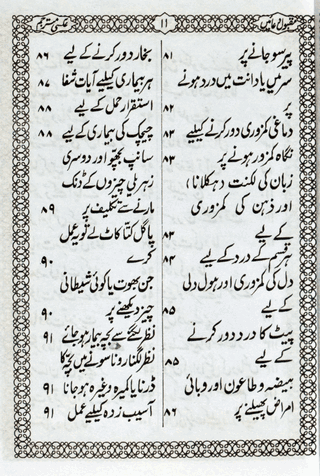 مقبول دعائیں
۱۱
عکسی مترجم
پیر سو جانے پر ۸۱
سر میں یا دانت میں درد ہونے
پر ۸۲
دماغی کمزوری دور کرنے کیلئے ۸۲
نگاہ کمزور ہونے پر ۸۳
زبان کی لکنت (ہکلانا)
اور ذہن کی کمزوری
کے لیے ۸۳
ہر قسم کے درد کے لیے ۸۴
دل کی کمزوری اور ہول دلی
کے لیے ۸۵
پیٹ کا درد دور کرنے
کے لیے ۸۵
ہیضہ و طاعون اور وبائی
امراض پھیلنے پر ۸۶
بخار دور کرنے کے لیے ۸۶
ہر بیماری کیلئے آیات شفا ۸۷
استقرار حمل کے لیے ۸۸
چیچک کی بیماری کے لیے ۸۸
سانپ بچھو اور دوسری
زہریلی چیزوں کے ڈنک
مارنے سے تکلیف پر ۸۹
پاگل کتا کاٹ لے تو یہ عمل
کرے ۹۰
جن بھوت یا کوئی شیطانی
چیز دیکھنے پر ۹۰
نظر لگنے سے بچہ بیمار ہو جائے ۹۱
نظر لگنا رونا سونے میں بچہ کا
ڈرنا یا کمیرہ وغیرہ ہو جانا ۹۱
آسیب زدہ کیلئے عمل ۹۱